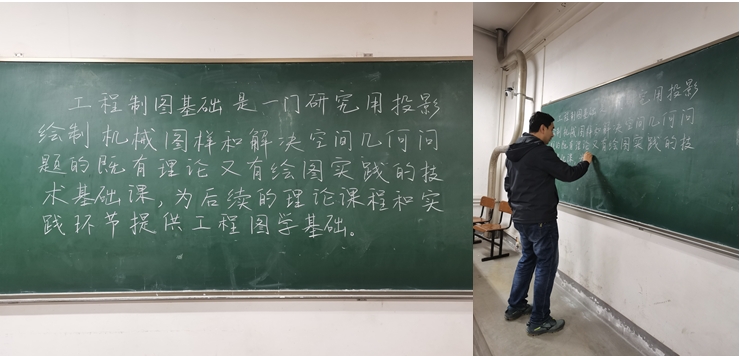 工程制图基础是一门研究用投影
绘制机械图样和解决空间几何问
题的既有理论又有绘图实践的技
术基础课，为后续的理论课程和实
践环节提供工程图学基础。
工程制图基础 究用投影
机械图样和解决空间几何问
既有理论又有绘图实践的技